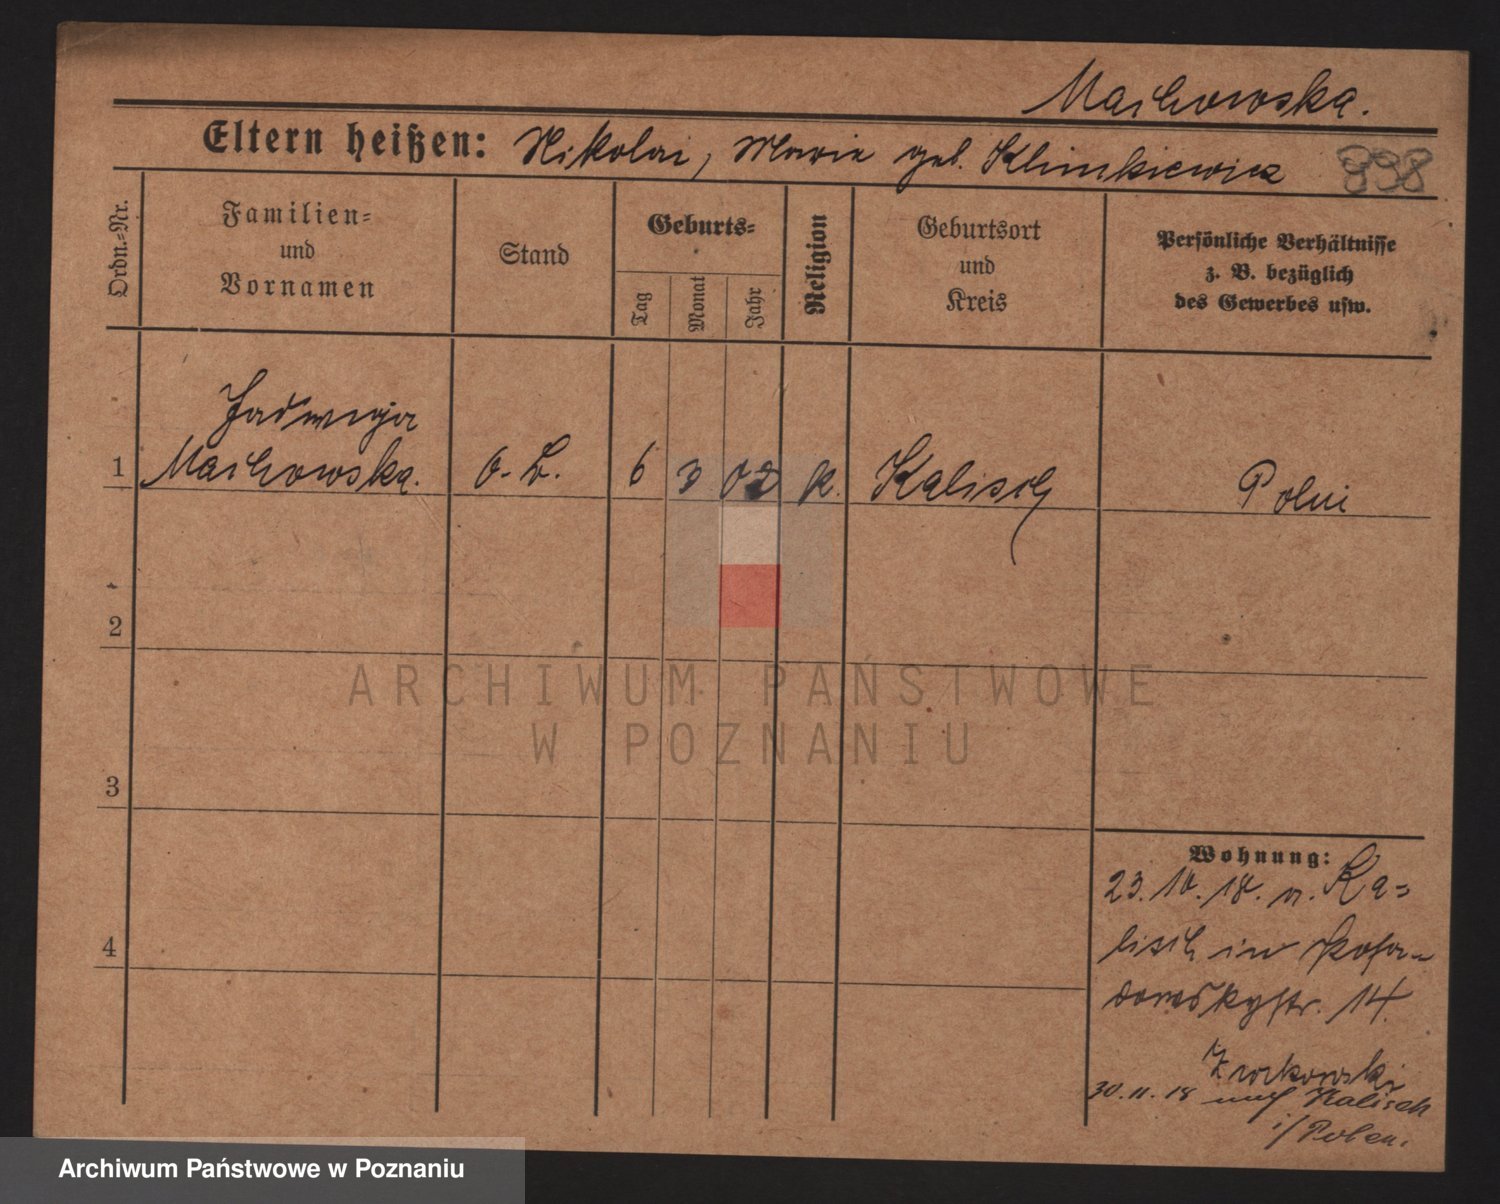 Machowska.
Eltern heißen: Nikolai, Maria geb. Klimkiewicz 898
Ordn.=Nr.
Familien=
und
Vornamen
Stand
Geburts=
Tag
Monat
Jahr
Religion
Geburtsort
und
Kreis
Persönliche Verhältnisse
z. B. bezüglich
des Gewerbes usw.
Jadwiga
1 Machowska. o. B. 6 3 02 k. Kalisch Polni
2
3
4
ARCHIWUM PAŃSTWOWE
W POZNANIU
Wohnung:
23.10.18. v. Ka=
lisch
14.
Zurkowski
30.11.18 nach Kalisch
i/Polen.
Archiwum Państwowe w Poznaniu